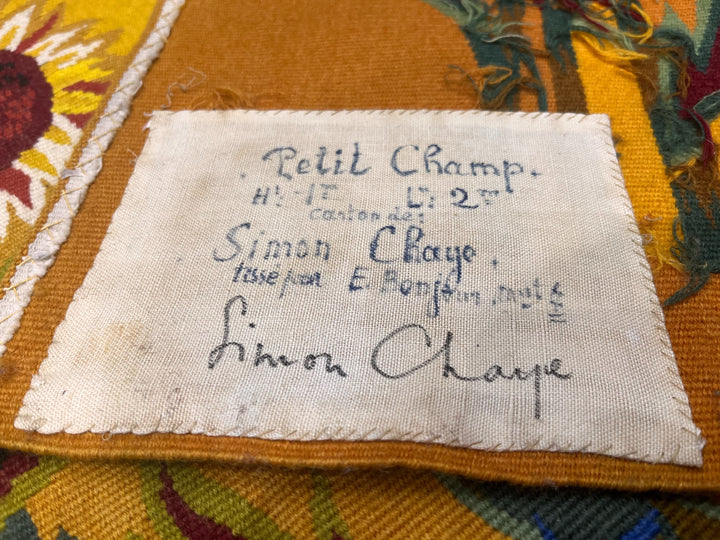 Petit Champ.
Ht: 1m Lr: 2m
carton de:
Simon Chaye.
tissé par E. Bonjour,
Simon Chaye